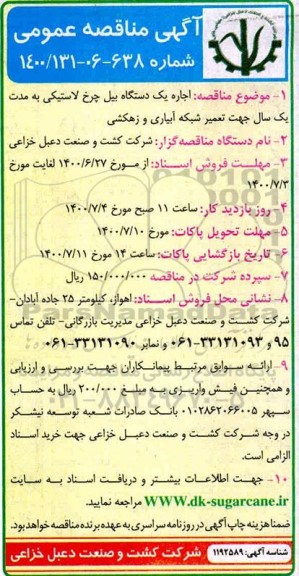 آگهی مناقصه عمومی
شماره ۶۳۸-۰۶-۱۴۰۰/۱۳۱
۱- موضوع مناقصه: اجاره یک دستگاه بیل چرخ لاستیکی به مدت
یک سال جهت تعمیر شبکه آبیاری و زهکشی
۲- نام دستگاه مناقصه‌گزار: شرکت کشت و صنعت دعبل خزاعی
۳- مهلت فروش اسناد: از مورخ ۱۴۰۰/۶/۲۷ لغایت مورخ
۱۴۰۰/۷/۳
۴- روز بازدید کار: ساعت ۱۱ صبح مورخ ۱۴۰۰/۷/۴
۵- مهلت تحویل پاکات: مورخ ۱۴۰۰/۷/۱۰
۶- تاریخ بازگشایی پاکات: ساعت ۱۴ مورخ ۱۴۰۰/۷/۱۱
۷- سپرده شرکت در مناقصه ۱۵۰/۰۰۰/۰۰۰ ریال
۸- نشانی محل فروش اسناد: اهواز، کیلومتر ۲۵ جاده آبادان-
شرکت کشت و صنعت دعبل خزاعی مدیریت بازرگانی- تلفن تماس
۹۵ و ۳۳۱۳۱۰۹۳-۰۶۱ و نمابر ۳۳۱۳۱۰۹۰-۰۶۱
۹- ارائه سوابق مرتبط پیمانکاران جهت بررسی و ارزیابی
و همچنین فیش واریزی به مبلغ ۲۰۰/۰۰۰ ریال به حساب
سپهر ۰۱۰۲۸۶۲۰۶۶۰۰۵ بانک صادرات شعبه توسعه نیشکر
در وجه شرکت کشت و صنعت دعبل خزاعی جهت خرید اسناد
الزامی است.
۱۰- جهت اطلاعات بیشتر و دریافت اسناد به سایت
WWW.dk-sugarcane.ir مراجعه نمایید.
ضمنا هزینه چاپ آگهی در روزنامه سراسری به عهده برنده مناقصه خواهد بود.
شناسه آگهی: ۱۱۹۲۵۸۹
شرکت کشت و صنعت دعبل خزاعی